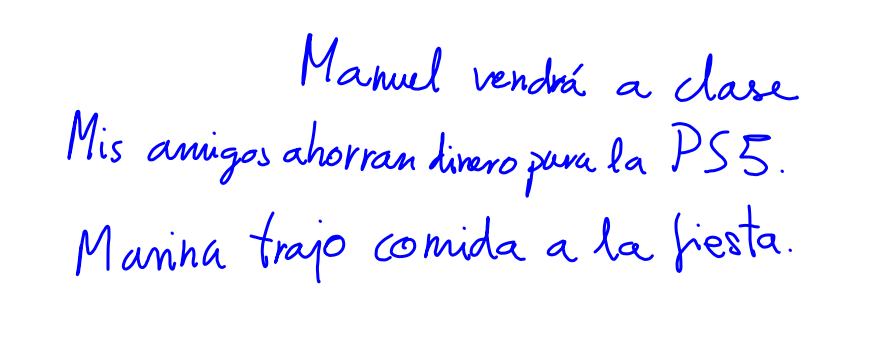 Manuel vendrá a clase
Mis amigos ahorran dinero para la PS5.
Marina trajo comida a la fiesta.